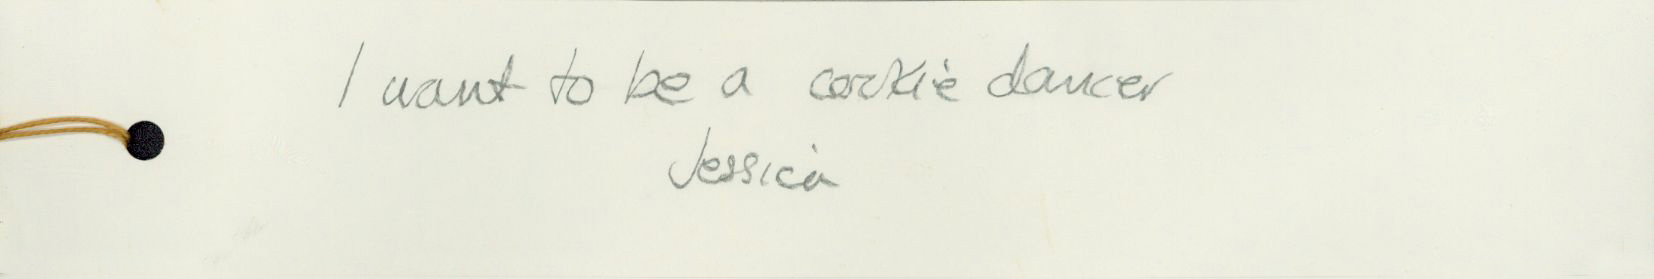 I want to be a cookie dancer
Jessica